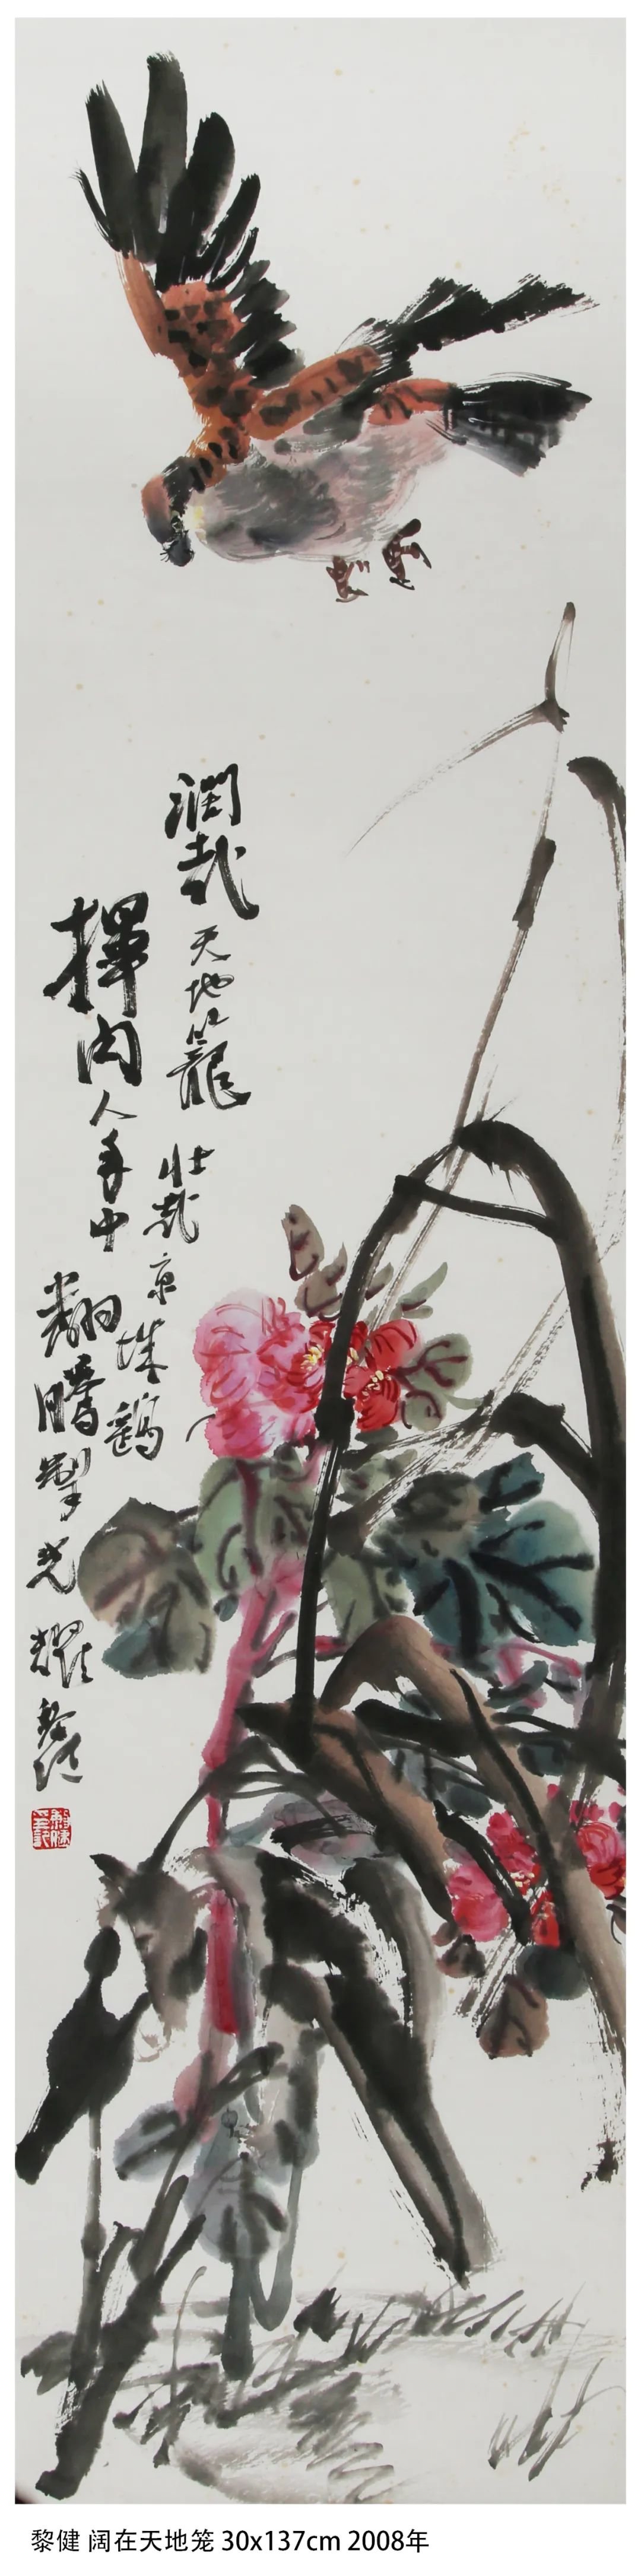 濶哉天地籠
壮哉京城鷂
揮肉人手中
翻騰掣光耀
黎健
黎健 阔在天地笼 30x137cm 2008年